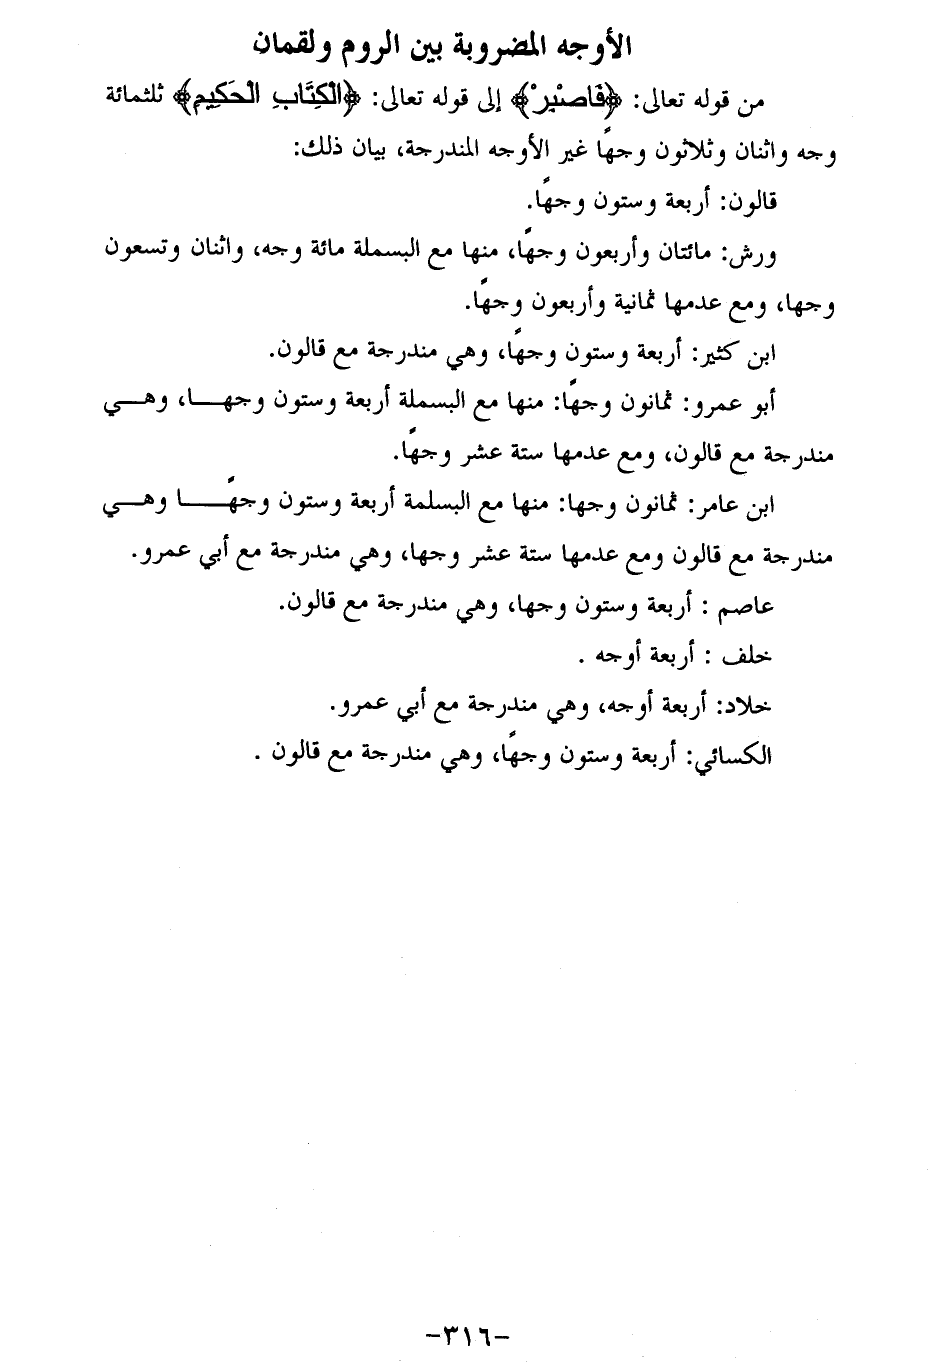 الأوجه المضروبة بين الروم ولقمان
من قوله تعالى: ﴿فَاصْبِرْ﴾ إلى قوله تعالى: ﴿الْكِتَابِ الْحَكِيمِ﴾ ثلثمائة
وجه واثنان وثلاثون وجهًا غير الأوجه المندرجة، بيان ذلك:
قالون: أربعة وستون وجهًا.
ورش: مائتان وأربعون وجهًا، منها مع البسملة مائة وجه، واثنان وتسعون
وجها، ومع عدمها ثمانية وأربعون وجهًا.
ابن كثير: أربعة وستون وجهًا، وهي مندرجة مع قالون.
أبو عمرو: ثمانون وجهًا: منها مع البسملة أربعة وستون وجهــا، وهــي
مندرجة مع قالون، ومع عدمها ستة عشر وجهًا.
ابن عامر: ثمانون وجها: منها مع البسلمة أربعة وستون وجهًــا وهــي
مندرجة مع قالون ومع عدمها ستة عشر وجها، وهي مندرجة مع أبي عمرو.
عاصم : أربعة وستون وجها، وهي مندرجة مع قالون.
خلف : أربعة أوجه .
خلاد: أربعة أوجه، وهي مندرجة مع أبي عمرو.
الكسائي: أربعة وستون وجهًا، وهي مندرجة مع قالون .
-٣١٦-